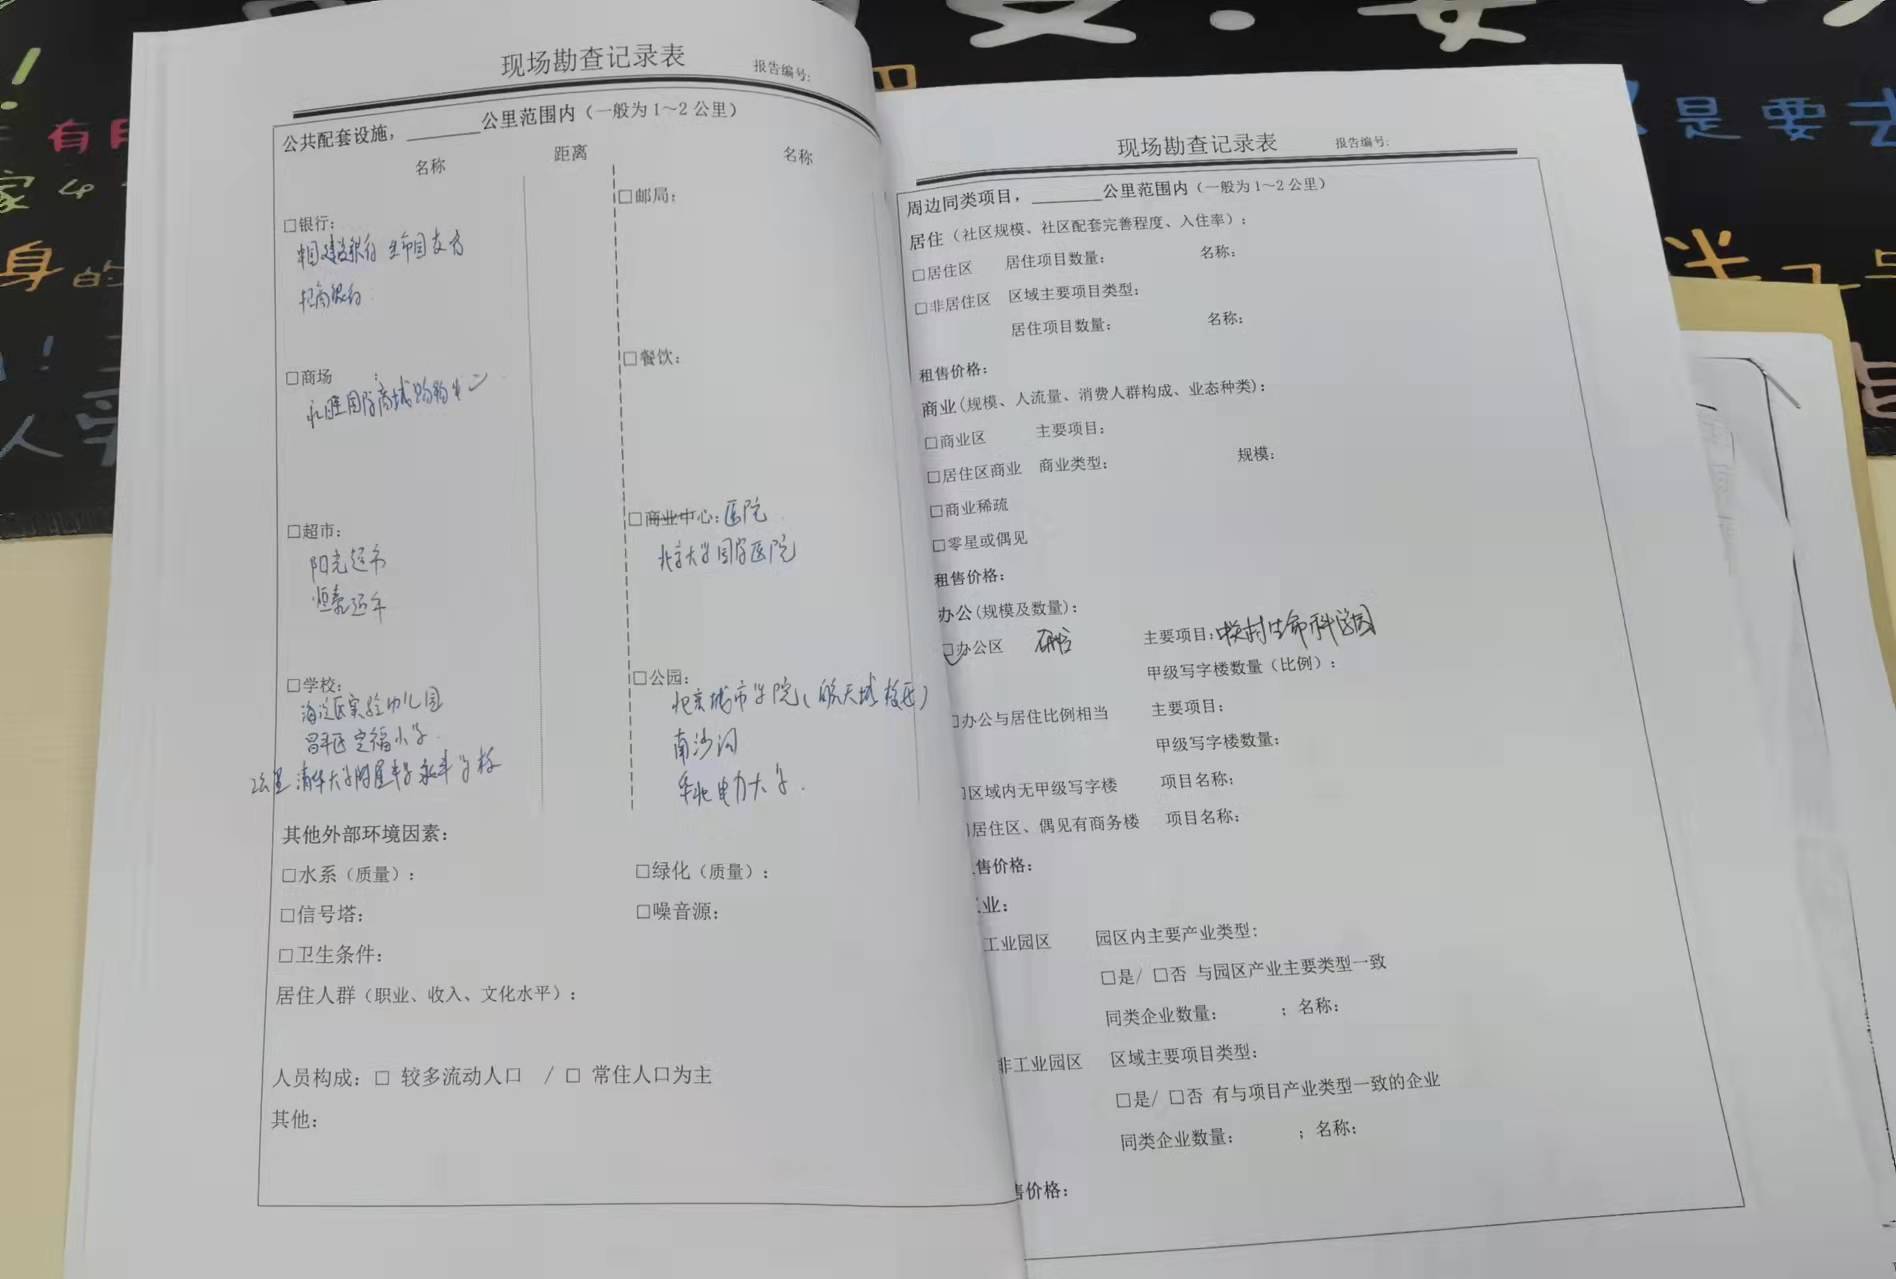 现场勘查记录表
报告编号:
公共配套设施，______公里范围内（一般为1～2公里）
名称 距离 名称
□银行:
中国建设银行
招商银行
□商场
永旺国际商城购物中心
□超市:
阳光超市
□学校:
海淀区实验幼儿园
昌平区定福小学
2公里 清华大学附属中学永丰学校
□邮局:
□餐饮:
□商业中心:医院
北京大学国际医院
□公园:
北京城市学院（航天城校区）
南沙河
华北电力大学.
其他外部环境因素:
□水系（质量）: □绿化（质量）:
□信号塔: □噪音源:
□卫生条件:
居住人群（职业、收入、文化水平）:
人员构成: □ 较多流动人口 / □ 常住人口为主
其他:
现场勘查记录表
报告编号:
周边同类项目，______公里范围内（一般为1～2公里）
居住（社区规模、社区配套完善程度、入住率）:
□居住区 居住项目数量: 名称:
□非居住区 区域主要项目类型:
居住项目数量: 名称:
租售价格:
商业(规模、人流量、消费人群构成、业态种类):
□商业区 主要项目:
□居住区商业 商业类型: 规模:
□商业稀疏
□零星或偶见
租售价格:
办公(规模及数量):
□办公区 主要项目:中关村生命科学园
甲级写字楼数量（比例）:
□办公与居住比例相当 主要项目:
甲级写字楼数量:
□区域内无甲级写字楼 项目名称:
居住区、偶见有商务楼 项目名称:
售价格:
业:
工业园区 园区内主要产业类型:
□是/ □否 与园区产业主要类型一致
同类企业数量: ；名称:
非工业园区 区域主要项目类型:
□是/ □否 有与项目产业类型一致的企业
同类企业数量: ；名称:
售价格: